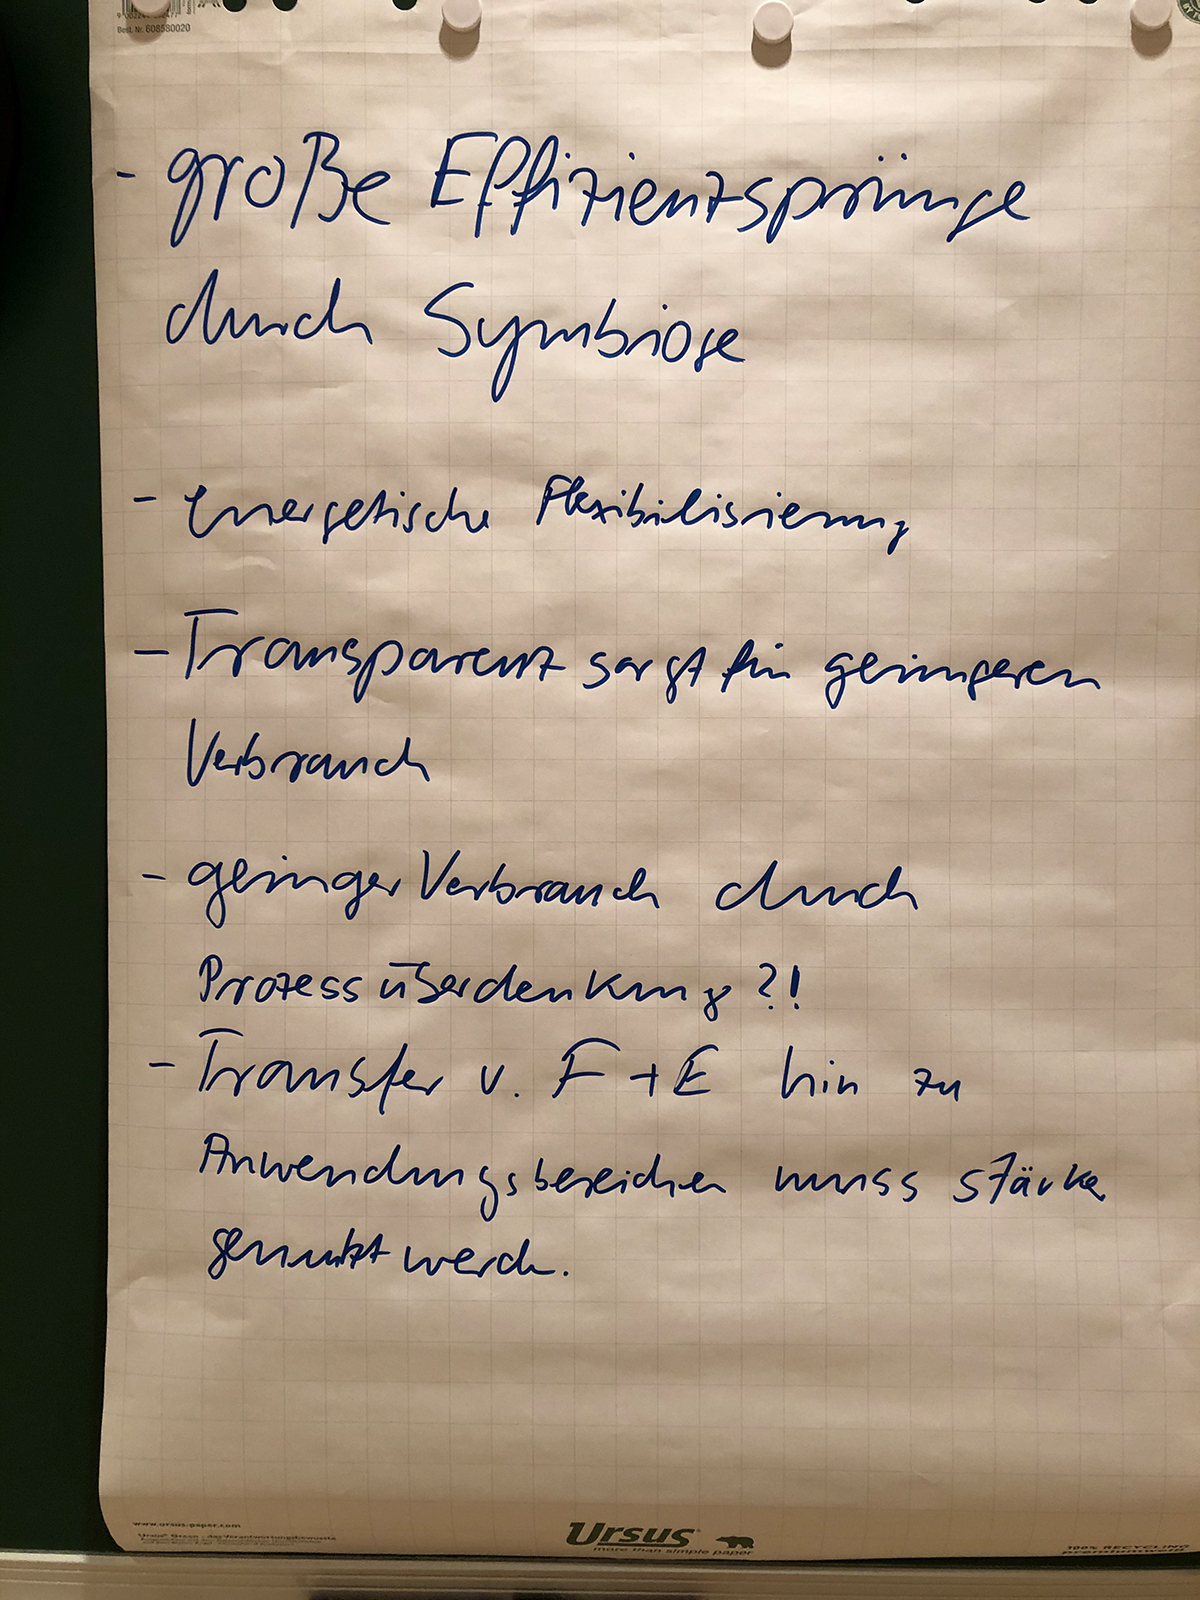 Best. Nr. 608580020
- große Effizienzsprünge
durch Symbiose
- energetische Flexibilisierung
- Transparenz sorgt für geringeren
Verbrauch
- geringer Verbrauch durch
Prozessüberdenkung ?!
- Transfer v. F + E hin zu
Anwendungsbereichen muss stärker
genutzt werden.
www.ursus-paper.com
Ursus
more than simple paper
100% RECYCLING